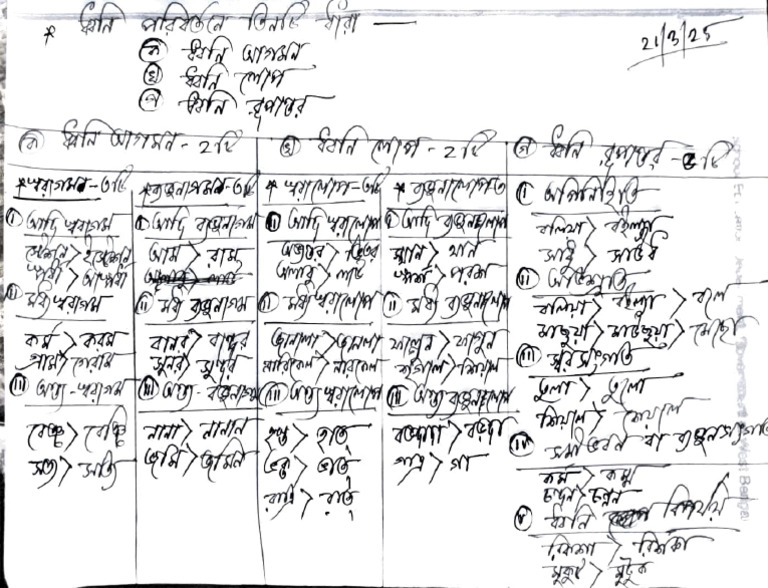 * ধ্বনি পরিবর্তনে তিনটি ধারা —
21/3/25
ক ধ্বনি আগমন
খ ধ্বনি লোপ
গ ধ্বনি রূপান্তর
ক ধ্বনি আগমন - 2টি
* স্বরাগমন - ৩টি
i আদি স্বরাগম
স্টেশন > ইস্টেশন
স্পর্ধা > আস্পর্ধা
ii মধ্য স্বরাগম
কর্ম > করম
গ্রাম > গেরাম
iii অন্ত্য - স্বরাগম
বেঞ্চ > বেঞ্চি
সত্য > সত্যি
* ব্যঞ্জনাগমন - ৩টি
i আদি ব্যঞ্জনাগম
আম > রাম
ii মধ্য ব্যঞ্জনাগম
বানর > বান্দর
সুনর > সুন্দর
iii অন্ত্য - ব্যঞ্জনাগম
নানা > নানান
জমি > জমিন
খ ধ্বনি লোপ - 2টি
* স্বরলোপ - ৩টি
i আদি স্বরলোপ
অভ্যন্তর > ভিতর
অলাবু > লাউ
ii মধ্য স্বরলোপ
জানালা > জানলা
নারিকেল > নারকেল
iii অন্ত্য স্বরলোপ
হস্ত > হাত্
ভক্ত > ভাত্
রাত্রি > রাত্
* ব্যঞ্জনলোপ ৩
i আদি ব্যঞ্জনলোপ
স্থান > থান
স্পর্শ > পরশ
ii মধ্য ব্যঞ্জনলোপ
ফাল্গুন > ফাগুন
শৃগাল > শিয়াল
iii অন্ত্য ব্যঞ্জনলোপ
বড়দাদা > বড়দা
গাত্র > গা
গ ধ্বনি রূপান্তর - ৫টি
i অপিনিহিতি
বলিয়া > বইল্যা
সাধু > সাউধ
ii অভিশ্রুতি
বলিয়া > বইল্যা > বলে
মাছুয়া > মাউছুয়া > মেছো
iii স্বরসংগতি
তুলা > তুলো
শিয়াল > শেয়াল
iv সমীভবন বা ব্যঞ্জনসংগতি
কর্ম > কম্ম
চন্দন > চন্নন
v ধ্বনি বিপর্যয়
রিকশা > রিশকা
মুকুট > মুটুক